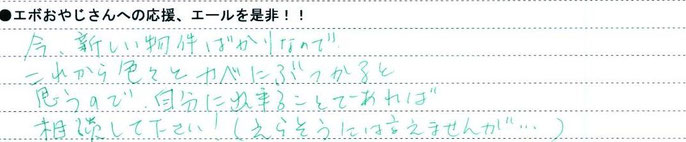 ●エボおやじさんへの応援、エールを是非！！
今、新しい物件ばかりなので
これから色々とカベにぶつかると
思うので、自分に出来ることであれば
相談して下さい！（えらそうには言えませんが…）